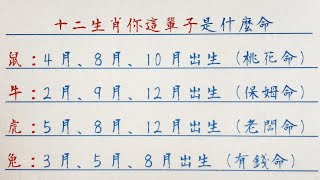 十二生肖你這單子是什麼命
鼠：4月、8月、10月出生（桃花命）
牛：2月、9月、12月出生（保姆命）
虎：5月、8月、12月出生（老闆命）
兔：3月、5月、8月出生（有錢命）